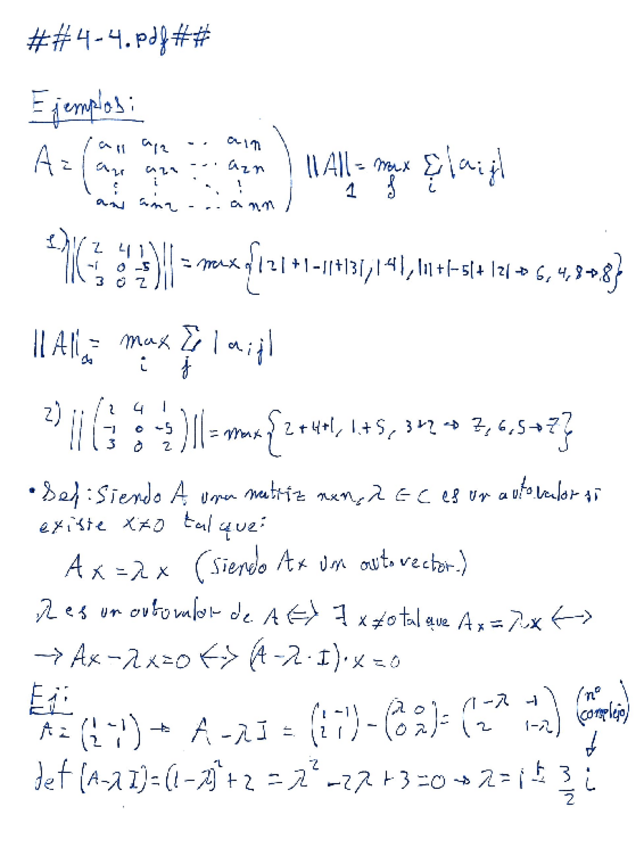 ##4-4.pdf##
Ejemplos:
A = (a11 a12 ... a1n; a21 a22 ... a2n; ⋮ ⋮ ⋱ ⋮; an1 an2 ... ann) ||A||₁ = max_j Σ_i |aij|
1) ||(2 4 1; -1 0 -5; 3 0 2)|| = max{|2|+|-1|+|3|, |4|, |1|+|-5|+|2| → 6, 4, 8 → 8}
||A||∞ = max_i Σ_j |aij|
2) ||(2 4 1; -1 0 -5; 3 0 2)|| = max{2+4+1, 1+5, 3+2 → 7, 6, 5 → 7}
• Def: Siendo A una matriz nxn, λ ∈ C es un autovalor si
existe x≠0 tal que:
Ax = λx (Siendo Ax un autovector.)
λ es un autovalor de A ⟺ ∃ x≠0 tal que Ax = λx ⟷
→ Ax - λx = 0 ⟷ (A - λ·I)·x = 0
Ej:
A = (1 -1; 2 1) → A - λI = (1 -1; 2 1) - (λ 0; 0 λ) = (1-λ -1; 2 1-λ) (nº complejo)
↓
det (A-λI) = (1-λ)² + 2 = λ² - 2λ + 3 = 0 → λ = 1 ± 3/2 i